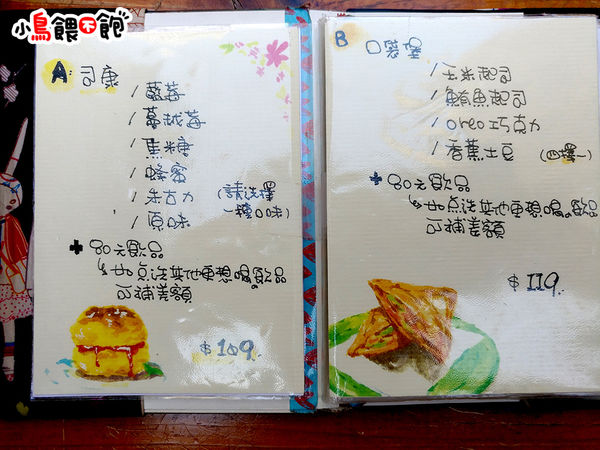 小鳥餵不飽
A. 司康
/ 藍莓
/ 蔓越莓
/ 焦糖
/ 蜂蜜
/ 朱古力
/ 原味
(請選擇
一種口味)
+ 80元飲品
↳如點選其他更想喝の飲品
可補差額
$ 109.
B
口袋堡
/ 玉米起司
/ 鮪魚起司
/ oreo巧克力
/ 香蕉土豆 (四擇一)
+ 80元飲品
↳如点选其他更想喝の飲品
可補差額
$ 119.